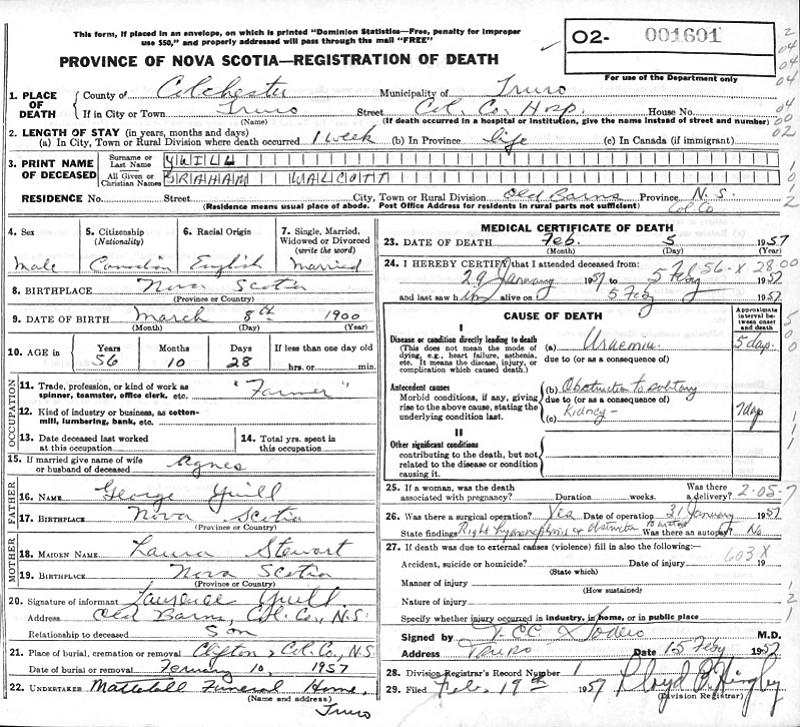 This form, if placed in an envelope, on which is printed "Dominion Statistics—Free, penalty for improper
use $50," and properly addressed will pass through the mail "FREE"
PROVINCE OF NOVA SCOTIA—REGISTRATION OF DEATH
O2- 001601
For use of the Department only
1. PLACE OF DEATH County of Colchester Municipality of Truro
If in City or Town Truro Street Col. Co. Hosp. House No.
(Name) (If death occurred in a hospital or institution, give the name instead of street and number)
2. LENGTH OF STAY (in years, months and days)
(a) In City, Town or Rural Division where death occurred 1 week (b) In Province life (c) In Canada (if immigrant)
3. PRINT NAME OF DECEASED Surname or Last Name YUILL
All Given or Christian Names GRAHAM WALCOTT
RESIDENCE No. Street City, Town or Rural Division Old Barns Province N.S.
(Residence means usual place of abode. Post Office Address for residents in rural parts not sufficient) Col Co
4. Sex 5. Citizenship (Nationality) 6. Racial Origin 7. Single, Married, Widowed or Divorced (write the word)
Male Canadian English Married
8. BIRTHPLACE Nova Scotia
(Province or Country)
9. DATE OF BIRTH March 8th 1900
(Month) (Day) (Year)
10. AGE in Years Months Days If less than one day old
56 10 28 hrs. or min.
OCCUPATION
11. Trade, profession, or kind of work as spinner, teamster, office clerk, etc. "Farmer"
12. Kind of industry or business, as cotton-mill, lumbering, bank, etc.
13. Date deceased last worked at this occupation 14. Total yrs. spent in this occupation
15. If married give name of wife or husband of deceased Agnes
FATHER
16. NAME George Yuill
17. BIRTHPLACE Nova Scotia
(Province or Country)
MOTHER
18. MAIDEN NAME Laura Stewart
19. BIRTHPLACE Nova Scotia
(Province or Country)
20. Signature of informant Laurence Yuill
Address Old Barns, Col. Co., N.S.
Relationship to deceased Son
21. Place of burial, cremation or removal Clifton, Col. Co., N.S.
Date of burial or removal February 10, 1957
22. UNDERTAKER Mattatall Funeral Home,
(Name and address) Truro
MEDICAL CERTIFICATE OF DEATH
23. DATE OF DEATH Feb. 5 1957
(Month) (Day) (Year)
24. I HEREBY CERTIFY that I attended deceased from:
29 January 1957 to 5 Feby 1957
56-X 28.00
and last saw him alive on 5 Feby 1957
CAUSE OF DEATH
Approximate interval between onset and death
I
Disease or condition directly leading to death (a) Uraemia 5 days.
(This does not mean the mode of dying, e.g., heart failure, asthenia, etc. It means the disease, injury, or complication which caused death.)
due to (or as a consequence of)
Antecedent causes (b) Obstruction to solitary
Morbid conditions, if any, giving rise to the above cause, stating the underlying condition last.
due to (or as a consequence of)
(c) Kidney - 7 days
II
Other significant conditions
contributing to the death, but not related to the disease or condition causing it.
25. If a woman, was the death associated with pregnancy? Duration weeks. Was there a delivery?
2-05-7
26. Was there a surgical operation? Yes Date of operation 31 January 1957
State findings Right hydronephrosis & obstruction to ureter Was there an autopsy? No
27. If death was due to external causes (violence) fill in also the following:—
603 X
Accident, suicide or homicide? Date of injury 19
(State which)
Manner of injury
(How sustained)
Nature of injury
Specify whether injury occurred in industry, in home, or in public place
Signed by M.D.
Address Truro Date 15 Feby 1957
28. Division Registrar's Record Number 1
29. Filed Feb. 19th 1957 Lloyd
(Division Registrar)